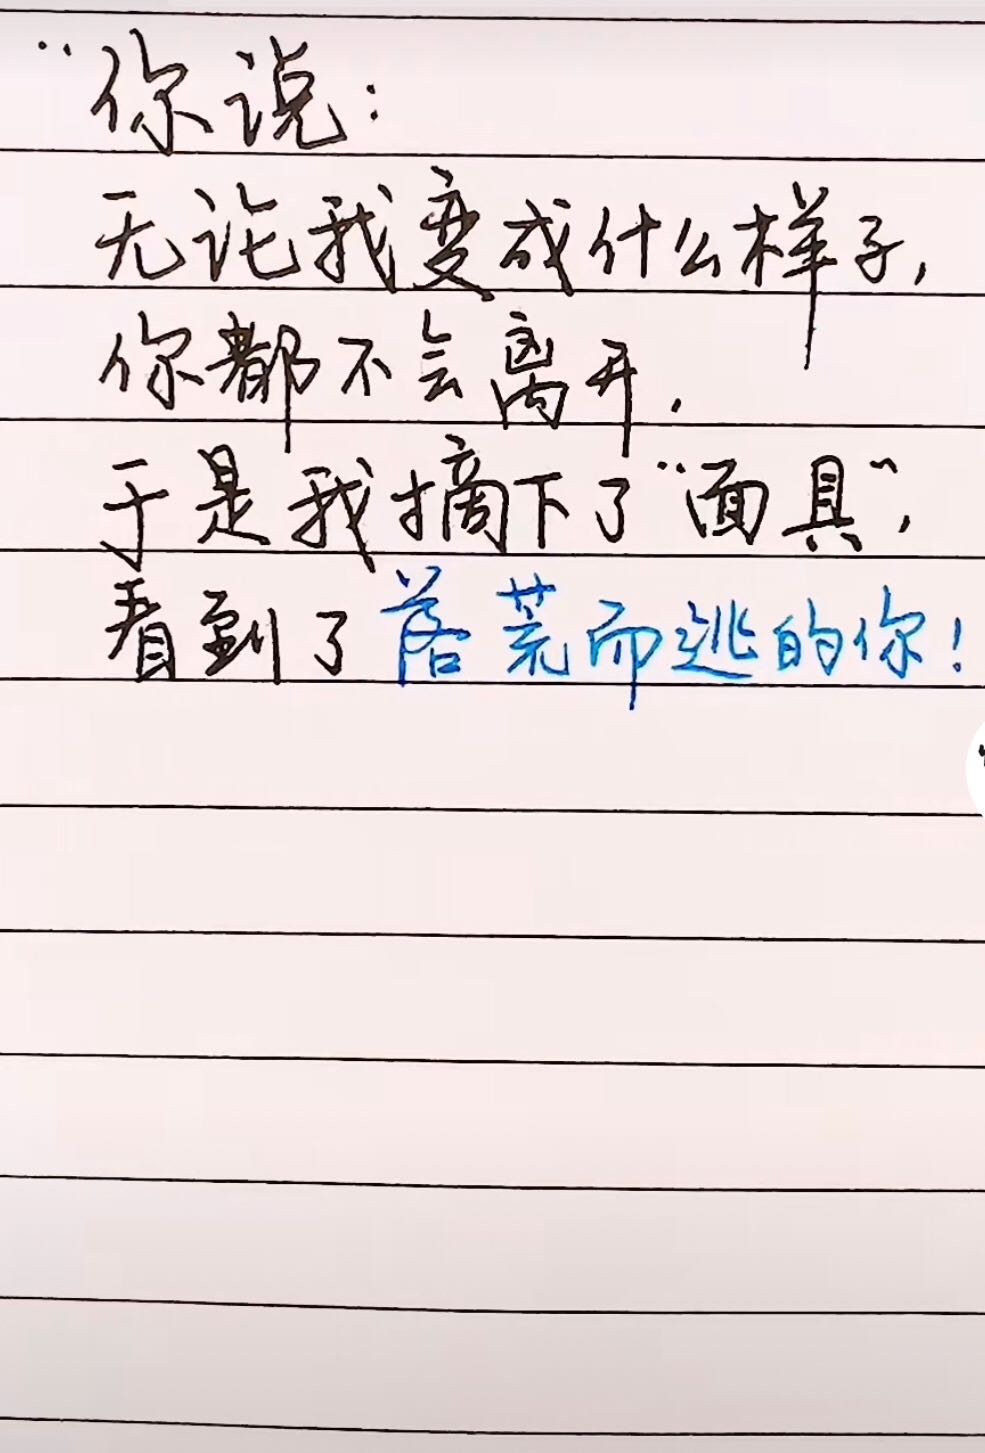 “你说：
无论我变成什么样子，
你都不会离开.
于是我摘下了“面具”，
看到了落荒而逃的你！